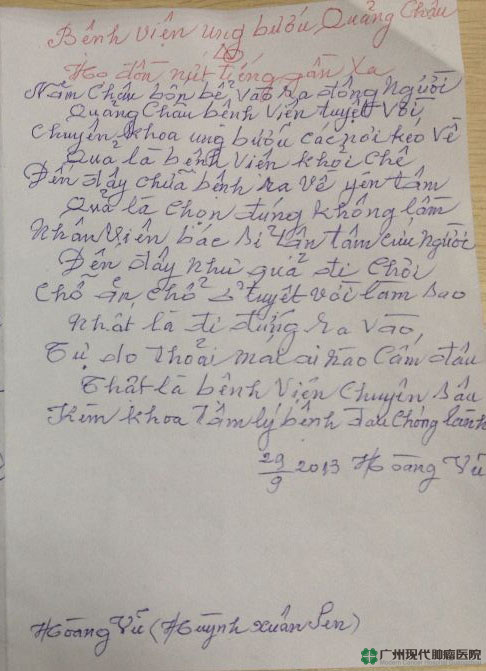 Bệnh viện ung bướu Quảng Châu
Họ đồn nứt tiếng gần xa
Năm Châu bốn bể vào ra đông Người
Quảng Châu bệnh viện tuyệt vời
Chuyên khoa ung bướu các nơi kéo về
Quả là bệnh viện khỏi chê
Đến đây chữa bệnh ra về yên tâm
Quả là chọn đúng không lầm
Nhân viên bác sĩ tận tâm cứu người
Đến đây như quả đi chơi
Chỗ ăn, chỗ ở tuyệt vời làm sao
Nhất là đi đứng ra vào
Tự do thoải mái ai nào cấm đâu
Thật là bệnh viện chuyên sâu
Kèm khoa tâm lý bệnh đau chóng lành
29/9 2013 Hoàng Vũ
Hoàng Vũ (Huỳnh Xuân Sen)
广州现代肿瘤医院